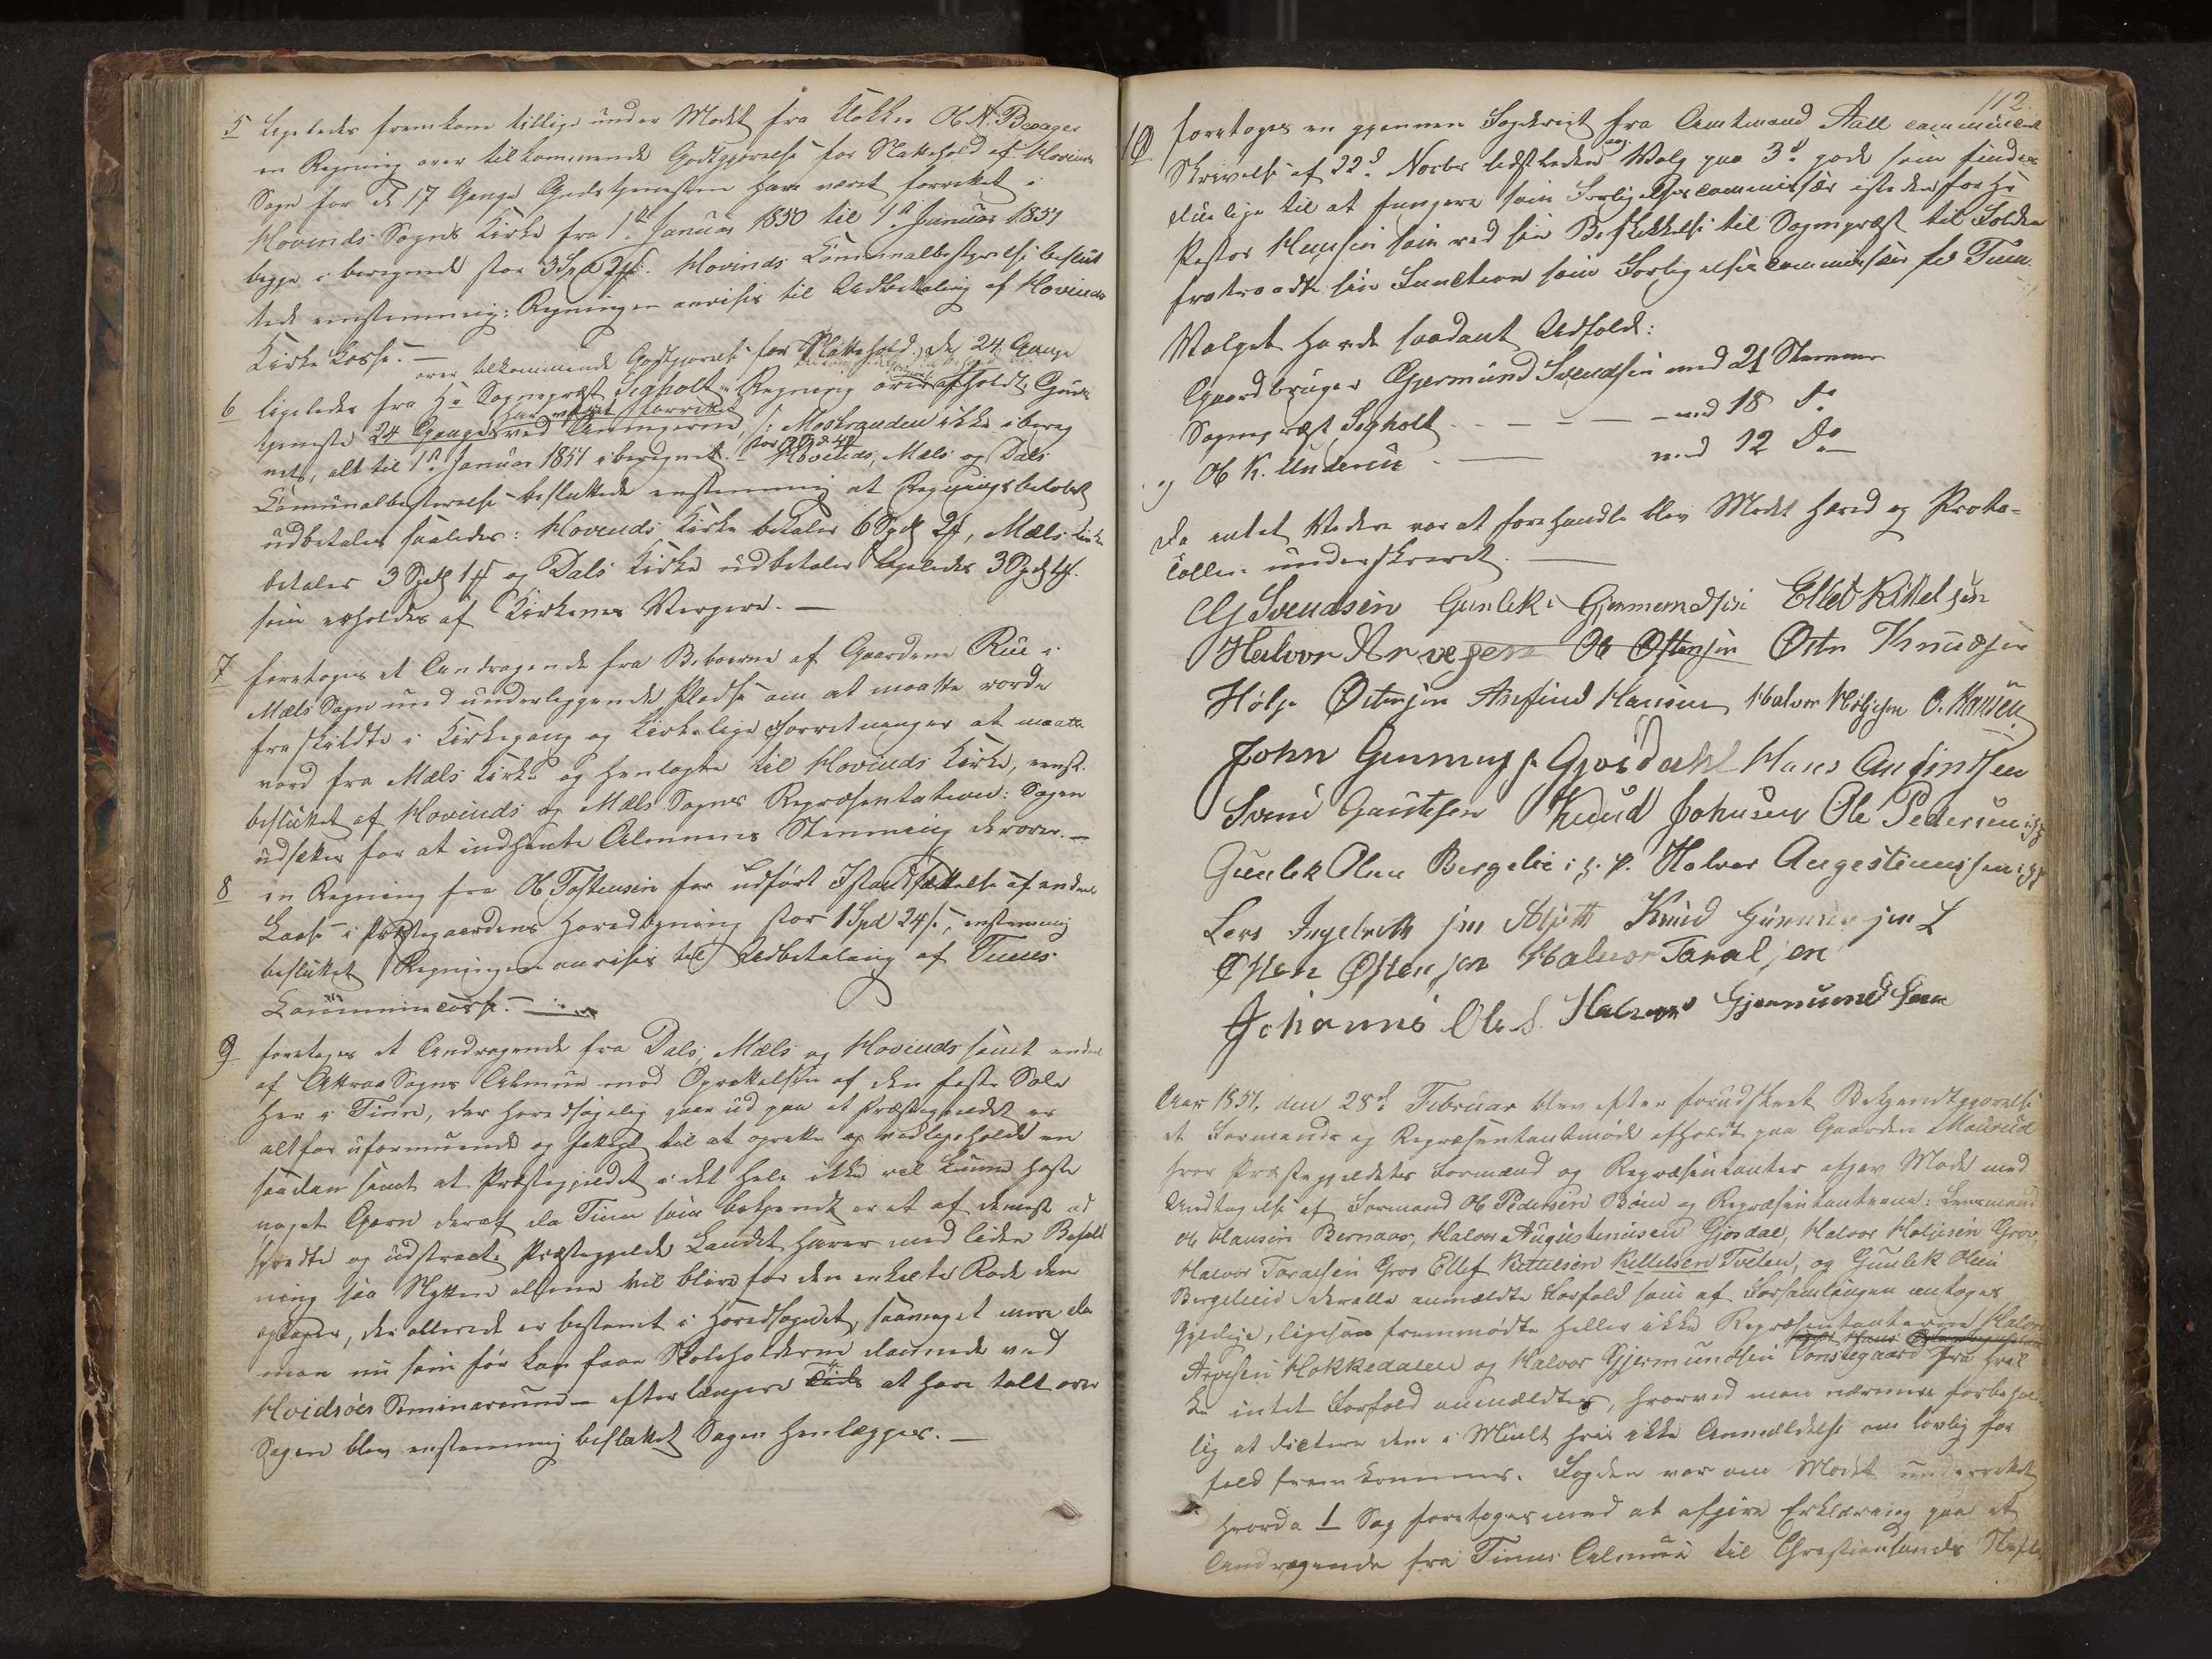 5 Ligeledes fremkom tillige under Mødet fra Klokker Ol. N. Bøxager
en Regning over tilkommende Godtgjørelse for Skatshold af Hovinds
Sogn for de 17 Gange Gudstjenesten har været forrettet i
Hovinds Sogns Kirke fra 1ste Januar 1850 til 1ste Januar 1851
begge i beregnede stor 3 Spd 2 #. Hovinds Communalbestyrelse beslut
tede eenstemmig: Regningen anvises til Udbetaling af Hovinds
Kirke Casse. —
over tilkommende Godtgjørelse for Skatshold, de 24 Gange
6 ligeledes fra Hr Sognepræst Sigholt Regning over afholdt Guds
har været forrettet
tjeneste 24 Gange ved Annexerne, /: Mosstranden ikke ibereg
net, alt til 1ste Januar 1851 iberegnet. Hovinds, Mæls og Dals
Communalbestyrelse besluttede eenstemmig at Regningsbeløbet
udbetales saaledes: Hovinds Kirke betaler 6 Spd 2 #, Mæls Kirke
betaler 3 Spd 1 # og Dals Kirke udbetaler ligeledes 3 Spd 1 #.
som erholdes af Kirkernes Værgere. —
7 foretoges et Andragende fra Beboerne af Gaardene Rue i
Mæls Sogn med underliggende Pladse om at maatte vorde
fraskildte i Kirkegang og Kirkelige Forretninger at maatte
vord fra Mæls Kirke og henlagte til Hovinds Kirke, eenst.
besluttet af Hovinds og Mæls Sognes Repræsentation: Sagen
udsættes for at indhente Almuens Stemning derover. —
8 en Regning fra Ol. Tostensen for udført Istandsættelse af endeel
Laase i Præstegaardens Hovedbygning stor 1 Spd 24 s., eenstemmig
besluttet Regningen anvises til Udbetaling af Tinns
Communecasse. —
9 foretoges et Andragende fra Dals, Mæls og Hovinds samt endeel
af Attraa Sogns Almue mod Oprettelsen af den faste Skole
her i Tinn, der hovedsagelig gaar ud paa at Præstegjeldet er
altfor uformuende og fattigt til at oprette og vedligeholde en
saadan samt at Præstegjeldet i det hele ikke vel kunde høste
noget Gavn deraf da Tinn som bekjendt er et af de mest ad
spredte og udstrakte Præstegjelde Landet haver med liden Befolk
ning saa Nytten alene vil blive for den enkelte Rode den
optages, der allerede er bestemt i Hovedsognet, saameget mere da
man nu som før kan faae Skoleholderne dannede ved
Hvidsøes Seminarium — efter længere Tids at have talt over
Sagen blev eenstemmig besluttet Sagen henlægges. —
112.
10 foretoges en gjennem Fogderiet fra Amtmand Aall communiceret
Skrivelse af 22de Novbr sidstleden ang. Valg paa 3de gode som finder
duelige til at fungere som Forligelsescommissær istedenfor Hr
Pastor Hansen som ved sin Beskikkelse til Sognepræst til Solden
fratraadte sin Function som Forligelsescommissær for Tinn.
Valget havde saadant Udfald:
Gaardbruger Gjermund Svendsen med 21 Stemmer
Sognepræst Sigholt - - - - - med 18 do
og Ol. K. Underue - — med 12 Do —
Da intet Videre var at forehandle blev Mødet hævet og Proto-
collen underskrevet. —
G Svendsen Gunlek Gjermundsen Ellef Kittelsen
Halvor Arvesen Ole Østensen Østen Knudsen
Hølje Østensen Arnfind Hansen Halvor Høljesen O. Hansen
John Gunnufs. Gjøsdahl Hans Anfindsen
Svend Gautesen Knud Johnsen Ole Pedersen i. f. P
Gunlek Olsen Bergelie i f. P. Halvor Augestinussen i f P
Lars Ingebreth sen Knud Gunnarsen L
Østen Østensen Halvor Taraldsen
Johannis Ols. Halvor Gjermundsen
Aar 1851, den 28de Februar blev efter forudskeet Bekjendtgjørelse
et Formands og Repræsentantmøde afholdt paa Gaarden Maurud
hvor Præstegjeldets Formænd og Repræsentanter afgav Møde med
Undtagelse af Formand Ol. Pedersen Bøen og Repræsentanterne: Lensmand
Ol. Clausen Bernaas, Halvor Augustinusen Gjøsdal, Halvor Høljesen Grov,
Halvor Taraldsen Grov Ellef Kittelsen Kittelsen Tveten, og Gunlek Olsen
Bergeli deralle anmældte Forfald som af Forsamlingen antoges
gyldige, ligesom fremmødte heller ikke Repræsentanterne Halvor
Arvesen Hokkedalen og Halvor Gjermundsen Consegaard fra hvil
ke intet Forfald anmældtes, hvorved man nærmere forbehol
lig at dictere dem i Mulkt hvis ikke Anmældelse om lovlig For
fald fremkommer. Fogden var om Mødet underrettet
hvorda 1 Sag foretoges med at afgive Erklæring paa et
Andragende fra Tinns Almue til Christiansands Stifts